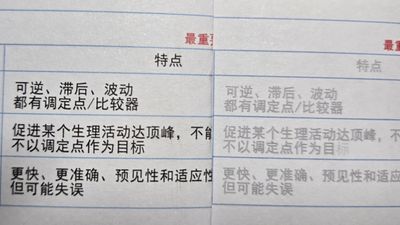 最重
特点
可逆、滞后、波动
都有调定点/比较器
促进某个生理活动达顶峰，不能
不以调定点作为目标
更快、更准确、预见性和适应性
但可能失误
最重
特点
可逆、滞后、波动
都有调定点/比较器
促进某个生理活动达顶峰，不
不以调定点作为目标
更快、更准确、预见性和适应
但可能失误